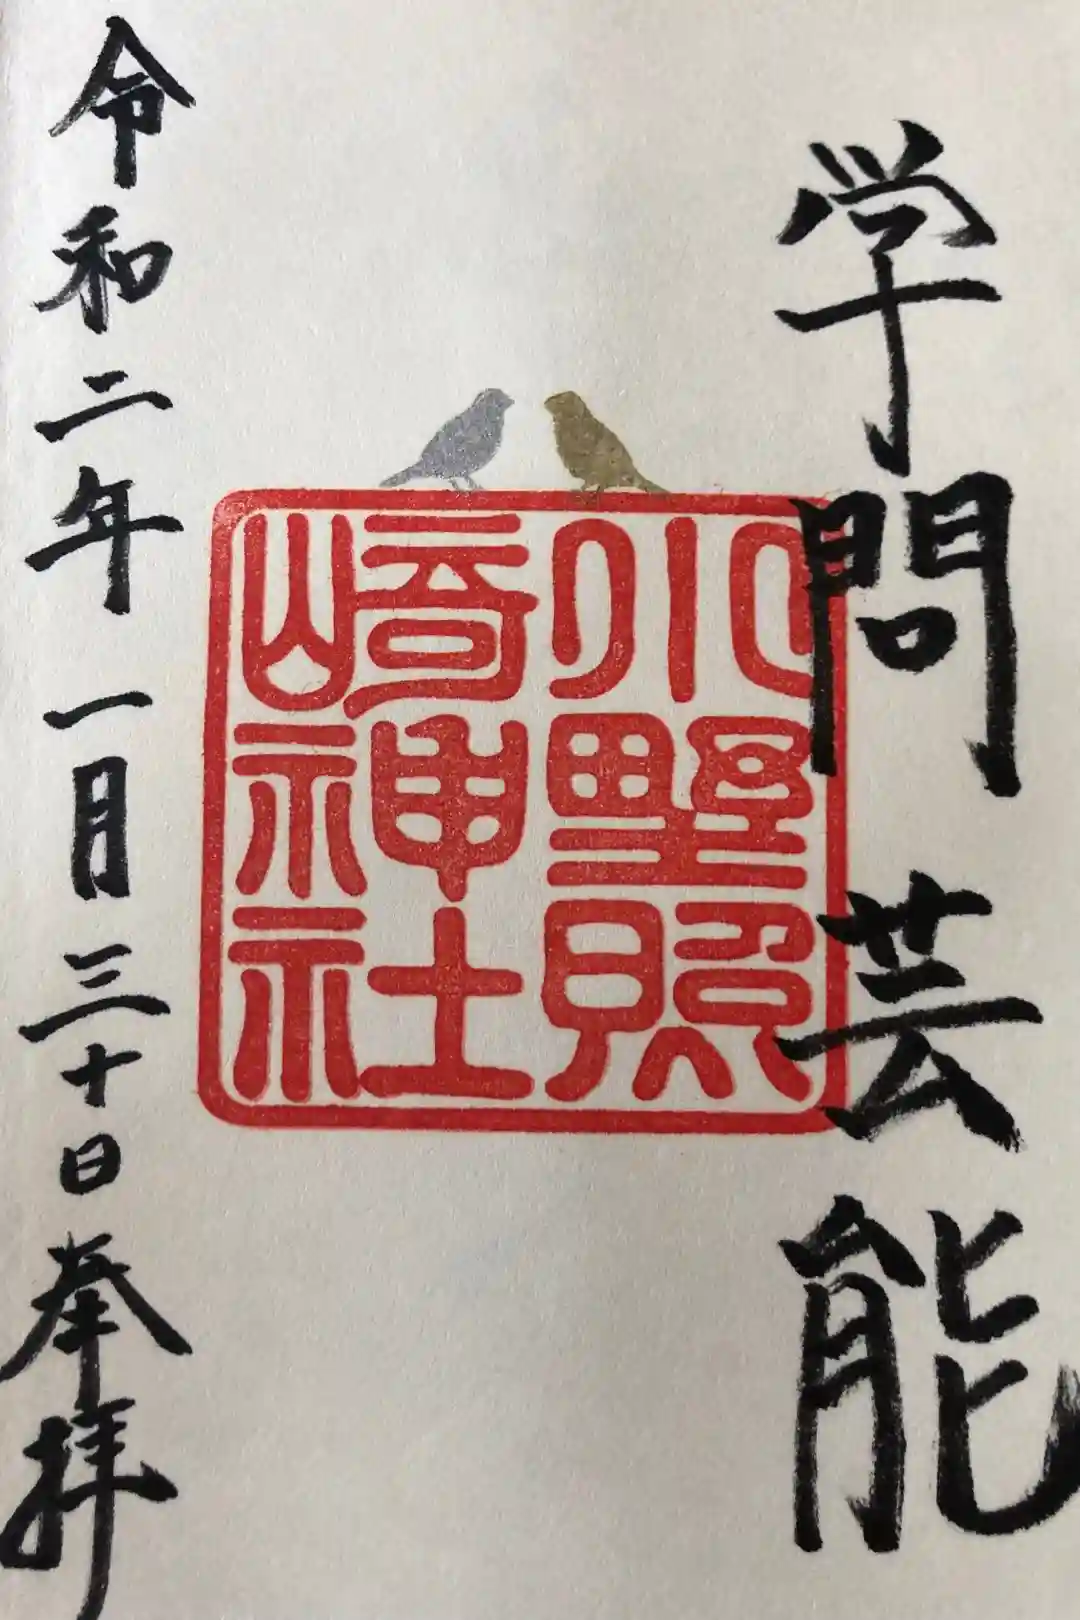 学問芸能
小野照
崎神社
令和二年一月三十日奉拝